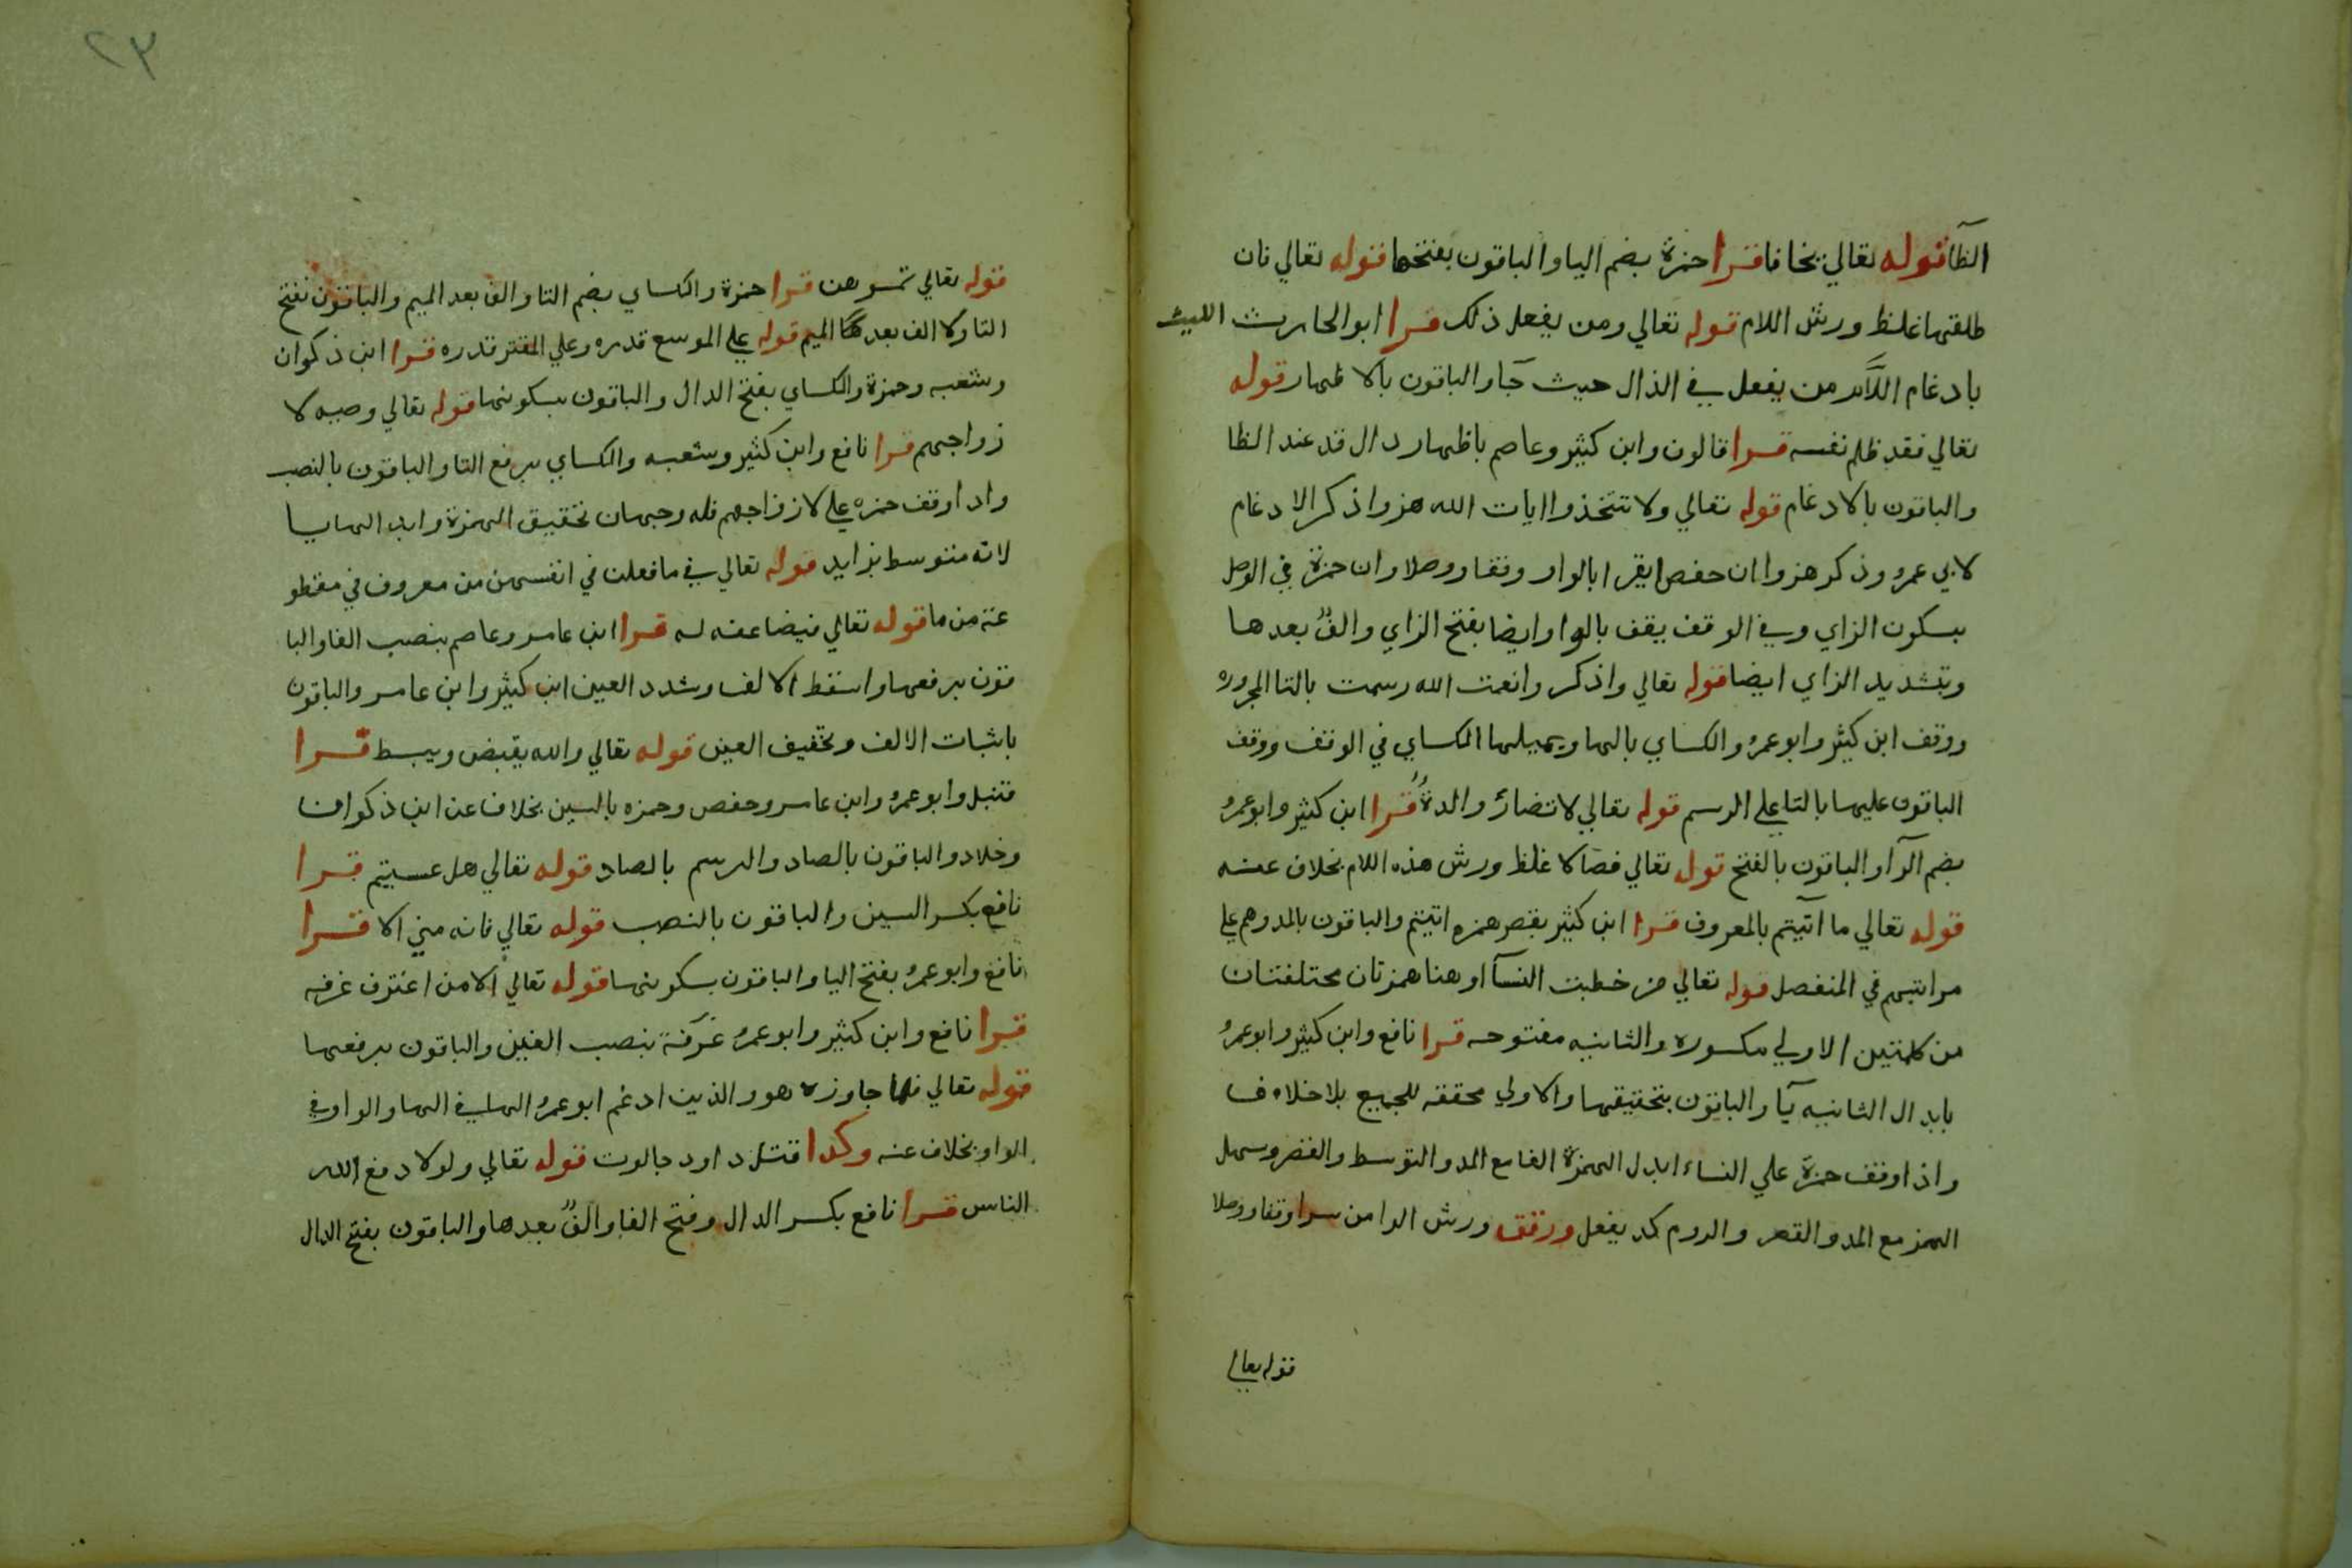 الظآ قوله تعالي يخافا قرا حمزة بضم اليا والباقون بفتحها قوله تعالي فان
طلقها غلظ ورش اللام قوله تعالي ومن يفعل ذلك قرا ابو الحارث الليث
بادغام اللام من يفعل في الذال حيث جآ والباقون بالاظهار قوله
تعالي فقد ظلم نفسه قرا قالون وابن كثير وعاصم باظهار دال قد عند الظا
والباقون بالادغام قوله تعالي ولا تتخذوا ايات الله هزوا ذكر الادغام
لابي عمرو وذكر هزوا ان حفص يقرا بالواو وقفا ووصلا وان حمزة في الوصل
بسكون الزاي وفي الوقف يقف بالواو وايضا بفتح الزاي والف بعدها
وبتشديد الزاي ايضا قوله تعالي واذكروا نعمت الله رسمت بالتا المجروره
ووقف ابن كثير وابو عمرو والكساي بالها ويميلها الكساي في الوقف ووقف
الباقون عليها بالتا علي الرسم قوله تعالي لا تضار والدة قرا ابن كثير وابو عمرو
بضم الرآ والباقون بالفتح قوله تعالي فصالا غلظ ورش هذه اللام بخلاف عنه
قوله تعالي ما اتيتم بالمعروف قرا ابن كثير بقصر همزه اتيتم والباقون بالمد وهم علي
مراتبهم في المنفصل قوله تعالي من خطبت النسآ او هنا همزتان مختلفتان
من كلمتين الاولي مكسوره والثانيه مفتوحه قرا نافع وابن كثير وابو عمرو
بابدال الثانيه يآ والباقون بتحقيقها والاولي محققه للجميع بلا خلاف
واذا وقف حمزة علي النساء ابدل الهمزة الفا مع المد والتوسط والقصر وسهل
الهمز مع المد والقصر والروم كد يفعل ورقق ورش الرا من سرا وقفا ووصلا
قوله تعالي
٢٣
قوله تعالي تمسوهن قرا حمزة والكساي بضم التا والف بعد الميم والباقون بفتح
التا ولا الف بعد الميم قوله علي الموسع قدره وعلي المقتر قدره قرا ابن ذكوان
وشعبه وحمزة والكساي بفتح الدال والباقون بسكونها قوله تعالي وصيه لا
زواجهم قرا نافع وابن كثير وشعبه والكساي برفع التا والباقون بالنصب
واذا وقف حمزه علي لازواجهم فله وجهان تحقيق الهمزة وابدالها يا
لانه متوسط بزايد قوله تعالي في ما فعلن في انفسهن من معروف في مقطو
عة من ما قوله تعالي فيضاعفه له قرا ابن عامر وعاصم بنصب الفا والبا
قون برفعها واسقط الالف وشدد العين ابن كثير وابن عامر والباقون
باثبات الالف وتخفيف العين قوله تعالي والله يقبض ويبسط قرا
قنبل وابو عمرو وابن عامر وحفص وحمزه بالسين بخلاف عن ابن ذكوان
وخلاد والباقون بالصاد والرسم بالصاد قوله تعالي هل عسيتم قرا
نافع بكسر السين والباقون بالنصب قوله تعالي فانه مني الا قرا
نافع وابو عمرو بفتح اليا والباقون بسكونها قوله تعالي الا من اغترف غرفه
قرا نافع وابن كثير وابو عمرو غرفة بنصب الغين والباقون برفعها
قوله تعالي فلما جاوزه هو والذين ادغم ابو عمرو الها في الها والواو في
الواو بخلاف عنه وكذا قتل داود جالوت قوله تعالي ولولا دفع الله
الناس قرا نافع بكسر الدال وفتح الفا والف بعدها والباقون بفتح الدال